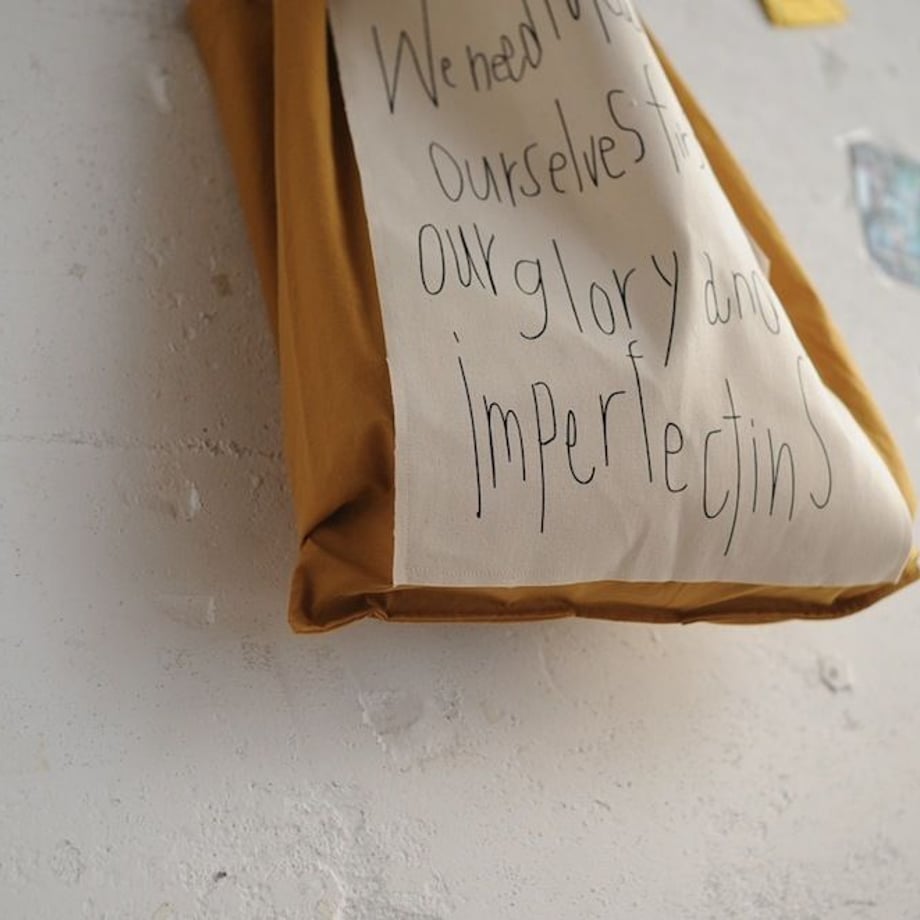 We need
ourselves
our glory and
imperfectins